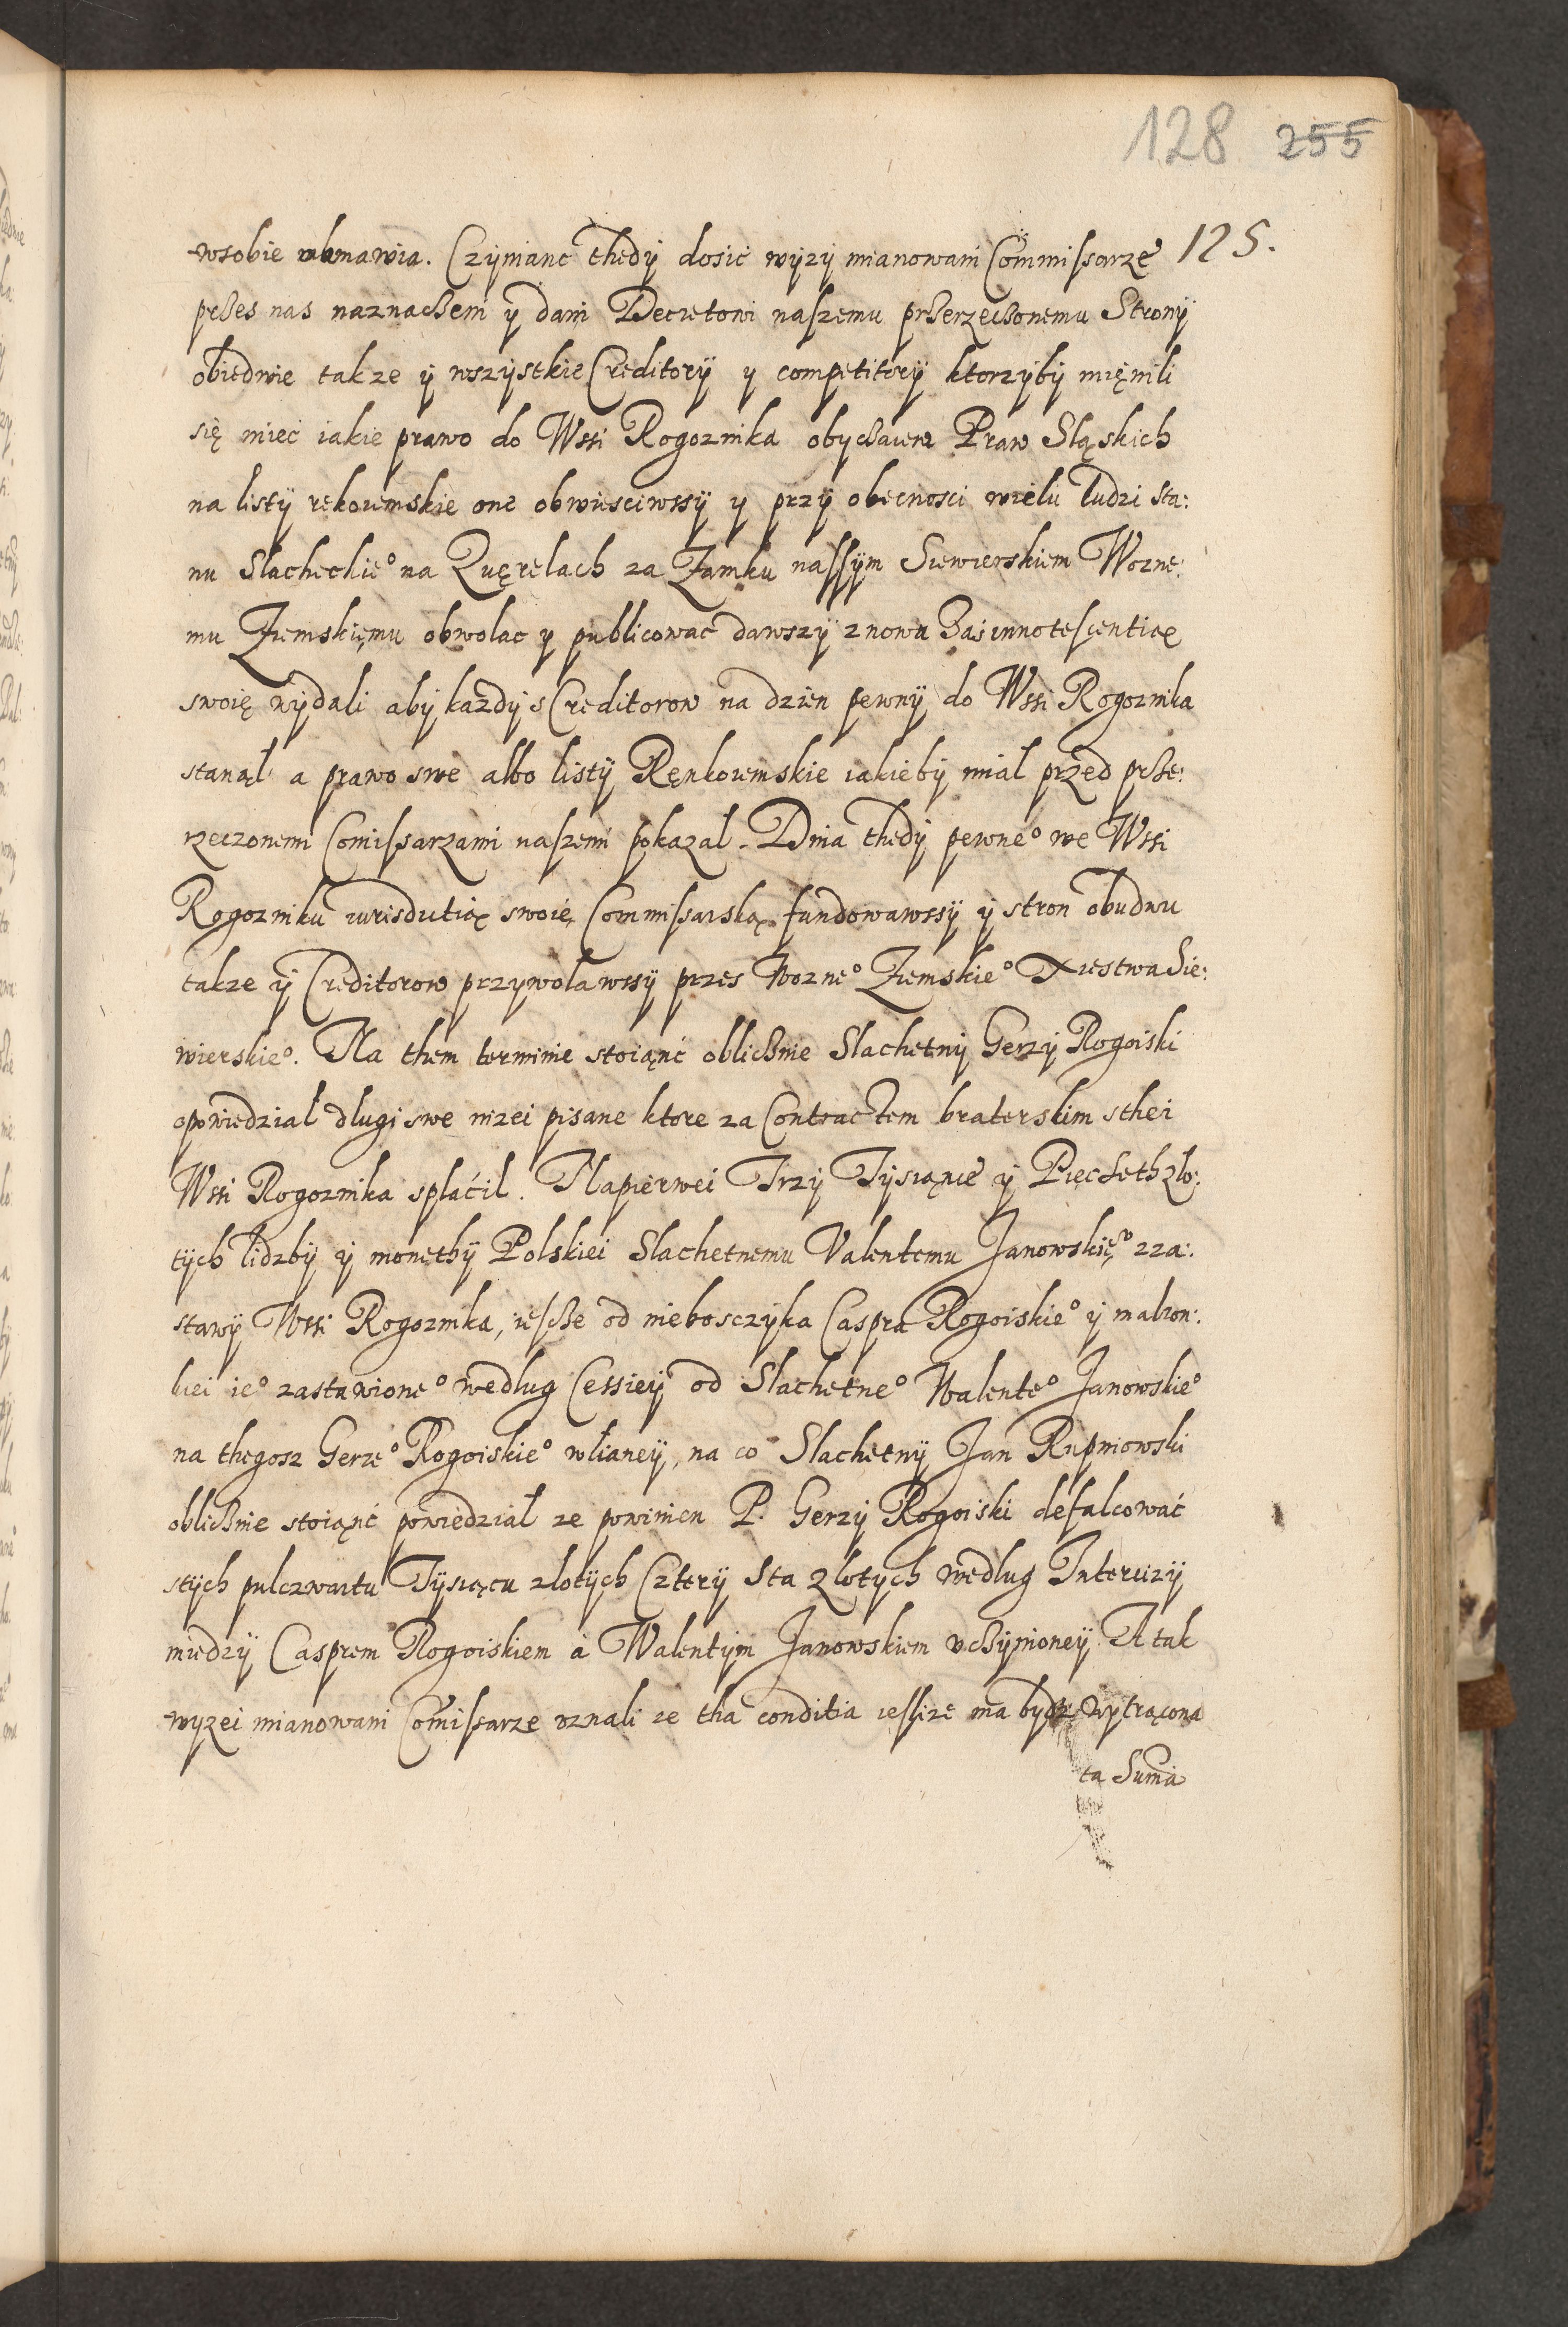 128 255
125.
wsobie wmawia. Czyniąnc thedÿ dosic wÿzÿ mianowani Commissarze
przes nas naznaczeni ÿ dani Decretowi naszemu przerzeczonemu Stronÿ
obiedwie takze ÿ wszÿstkie Creditorÿ y competitorÿ ktorzÿbÿ mięnili
się miec iakie prawo do Wssi Rogoznika obyczaiem Praw Sląskich
na listÿ rekoiemskie one obwiesciwssÿ y przÿ obecnosci wielu ludzi sta:
nu Slacheckieº na Quęrelach za Zamku nassÿm Siewierskiem Wozne:
mu Ziemskięmu obwolac y publicowac dawszÿ znowu Zas innotescentią
swoię wÿdali abÿ kazdÿ s Creditorow na dzien pewnÿ do Wssi Rogoznika
stanął a prawo swe albo listÿ Rękoiemskie iakiebÿ mial przed prze:
rzeczonemi Comissarzami naszemi pokazal. Dnia thedÿ pewneº we Wssi
Rogozniku iurisdictią swoię Commissarską fundowawssÿ ÿ stron obudwu
takze ÿ Creditorow przywolawssÿ przes Wozneº Ziemskieº Xiestwa Sie:
wierskieº. Na them terminie stoiąnć oblicznie Slachetnÿ Gerzÿ Rogoiski
opowiedzial dlugi swe nizei pisane ktore za Contractem braterskim sthei
Wssi Rogoznika splaćil. Napierwei Trzÿ Tÿsiąnce ÿ Pięcseth zlo:
tÿch lidzbÿ ÿ monethÿ Polskiei Slachetnemu Valentemu Janowskięº zza:
stawÿ Wssi Rogoznika, iescze od niebosczyka Caspra Rogoiskieº ÿ malzon:
kiei ieº zastawioneº wedlug Cessieÿ od Slachetneº Walenteº Janowskieº
na thegosz Gerzeº Rogoiskieº wlianeÿ, na co Slachetnÿ Jan Rupniowski
oblicznie stoiąnć powiedzial ze powinien P. Gerzÿ Rogoiski defalcować
stÿch pulczwartu Tÿsiącu zlotÿch Czterÿ Sta zlotych wedlug Intercizÿ
miedzÿ Casprem Rogoiskiem á Walentÿm Janowskiem vczÿnioneÿ. A tak
wyzei mianowani Comissarze vznali ze tha conditia iesli ze ma bydz wÿtrącona
ta Suma